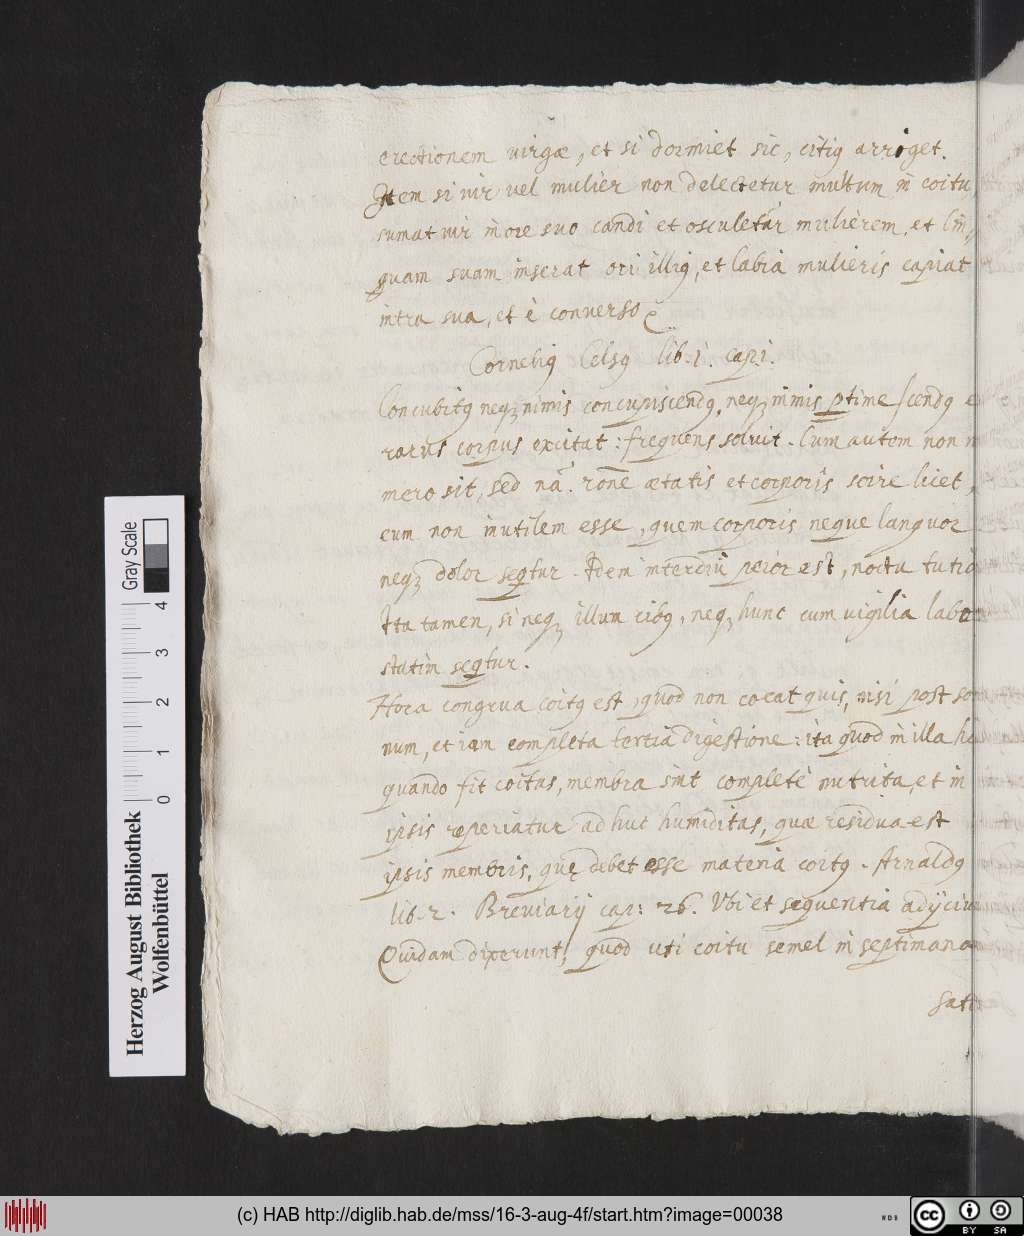 erectionem virgæ, et si dormiet sic, citiꝯ arriget.
Item si vir vel mulier non delectetur multum in coitu,
sumat vir in ore suo candi et osculetur mulierem, et lin„
guam suam inserat ori illiꝯ, et labia mulieris capiat
intra sua, et è converso
Corneliꝯ Celsꝯ lib. 1. cap. 1.
Concubitꝯ neqꝫ nimis concupiscendꝯ, neqꝫ nimis ptimescendꝯ e
rarus corpus excitat : frequens solvit. Cum autem non n
mero sit, sed nā. rōne ætatis et corporis scire licet,
eum non inutilem esse, quem corporis neque languor
neqꝫ dolor seqtur. Idem interdiu peior est, noctu tutio
Ita tamen, si neqꝫ illum cibꝯ, neqꝫ hunc cum vigilia labor
statim seqtur.
Hora congrua coitꝯ est, quod non coeat quis, nisi post so
num, et iam completa tertia digestione : ita quod in illa ho
quando fit coitus, membra sint completè nutrita, et in
ipsis reperiatur adhuc humiditas, quæ residua est
ipsis membris, quę debet esse materia coitꝯ. Arnaldꝯ
lib. 2. Breviarij cap: 26. Ubi et sequentia adijciun
Quidam dixerunt, quod uti coitu semel in septimana
satis
Gray Scale
4
3
2
1
0
Herzog August Bibliothek
Wolfenbüttel
(c) HAB http://diglib.hab.de/mss/16-3-aug-4f/start.htm?image=00038
WDB
cc
BY SA